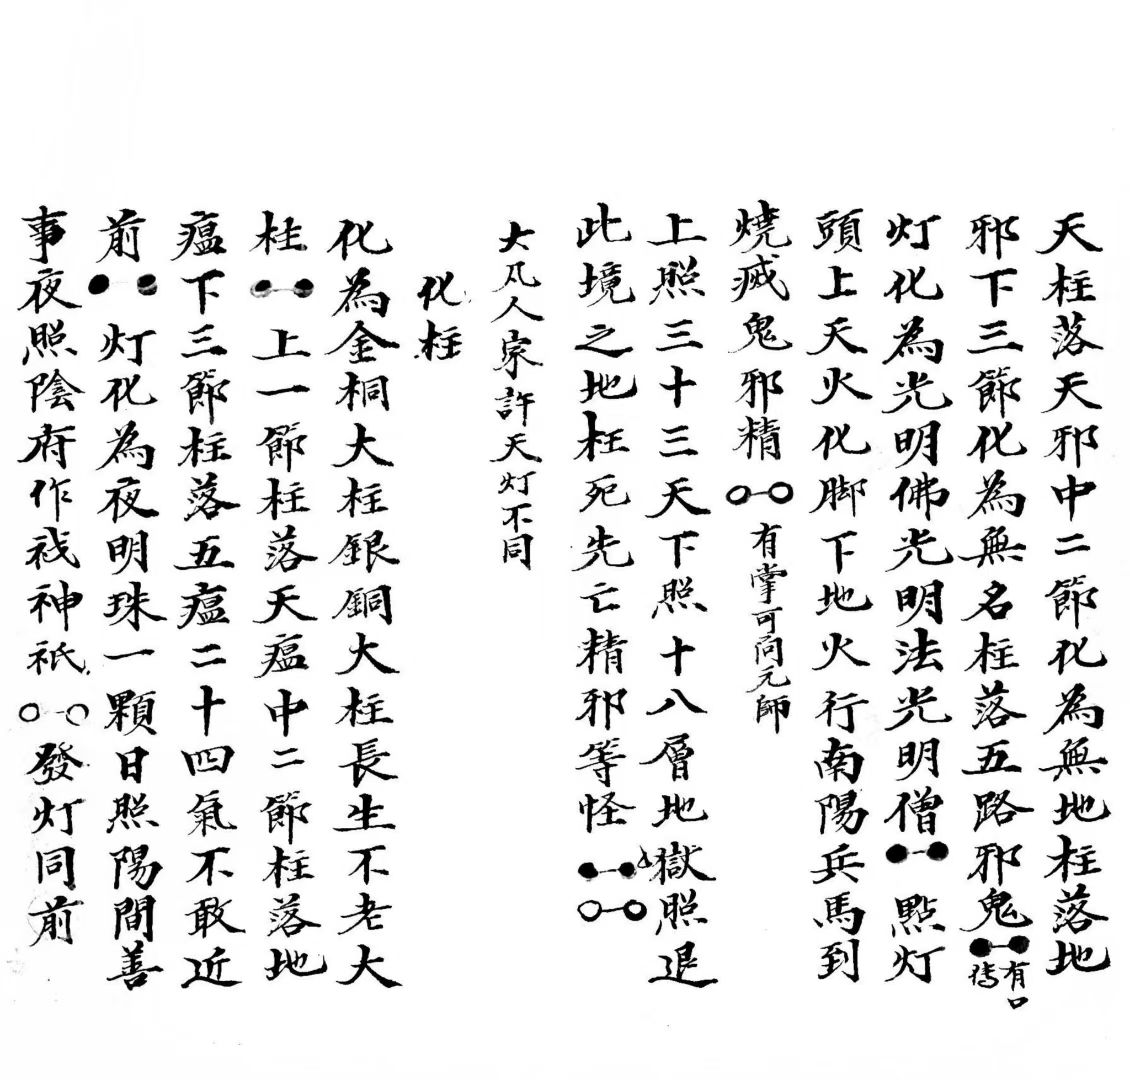 天柱落天邪中二節化為無地柱落地
邪下三節化為無名柱落五路邪鬼●-●有口傳
灯化為光明佛光明法光明僧●-●點灯
頭上天火化脚下地火行南陽兵馬到
燒滅鬼邪精○-○有掌可问元師
上照三十三天下照十八層地獄照退
此境之地枉死先亡精邪等怪●-●○-○
大凡人家許天灯不同
化柱
化為金桐大柱銀銅大柱長生不老大
柱●-●上一節柱落天瘟中二節柱落地
瘟下三節柱落五瘟二十四氣不敢近
前●-●灯化為夜明珠一顆日照陽間善
事夜照陰府作神祇○-○發灯同前